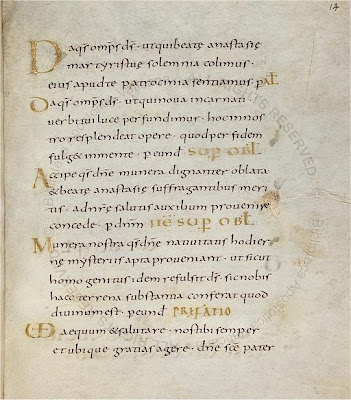 14
Da qs omps ds · ut qui beatę anastasię
martyris tuę solemnia colimus ·
eius apud te patrocinia sentiamus p Al
Da qs omps ds · ut qui nova incarnati
verbi tui luce perfundimur · hoc in nos
tro resplendeat opere · quod per fidem
fulget in mente · p eund SUPER OBL
Accipe qs dne munera dignanter oblata
& beatę anastasię suffragantibus meri
tis · ad nrę salutis auxilium provenire
concede · p dnm ITE SUP OBL
Munera nostra qs dne nativitatis hodier
nę mysteriis apta proveniant · ut sicut
homo genitus idem refulsit ds · sic nobis
haec terrena substantia conferat quod
divinum est · p eund PREFATIO
VD aequum & salutare · nos tibi semper
et ubique gratias agere · dne sce pater